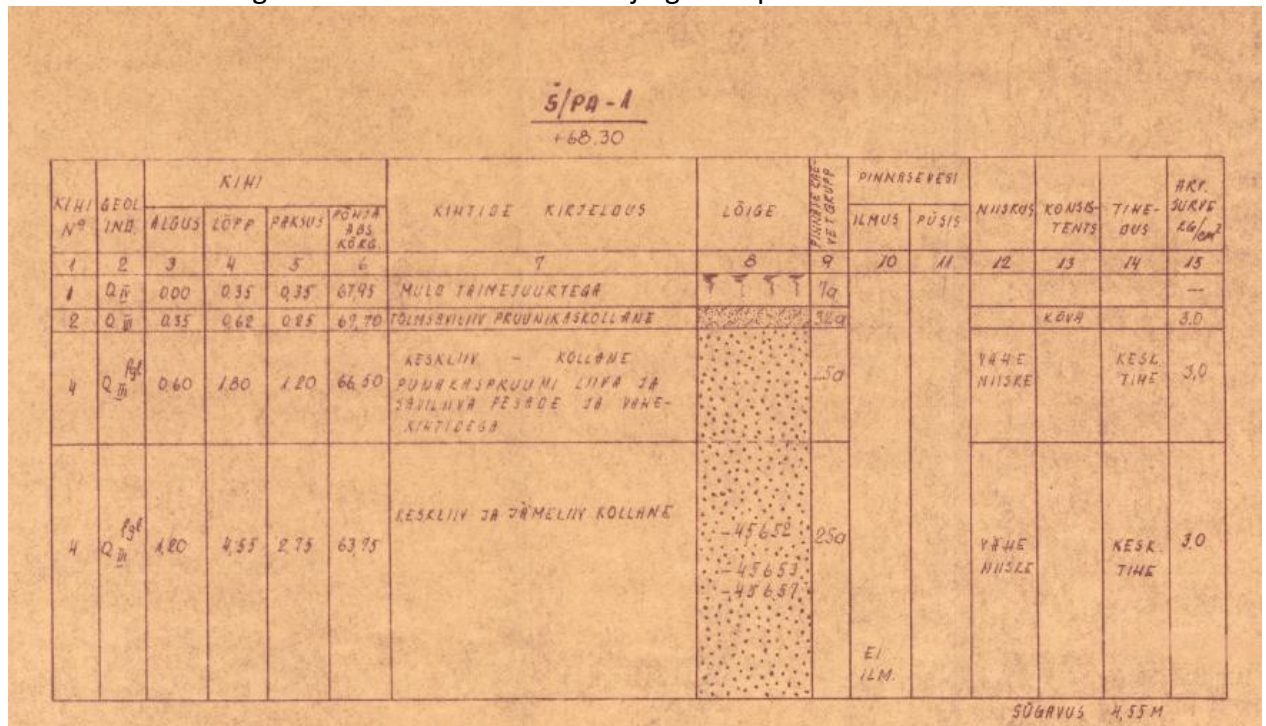 Š/PA-1
+68.30
KIHI Nº
GEOL. IND.
KIHI
ALGUS
LÕPP
PAKSUS
PÕHJA ABS. KÕRG.
KIHTIDE KIRJELDUS
LÕIGE
PINNASEVESI
ILMUS
PÜSIS
NIISKUS
KONSIS-
TENTS
TIHE-
DUS
ARV.
SURVE
KG/cm²
1 2 3 4 5 6 7 8 9 10 11 12 13 14 15
1 Q IV 0.00 0,35 0,35 67,95 MULD TAIMEJUURTEGA 7a —
2 Q III 0.35 0,62 0,25 67,70 TOLMSAVILIIV PRUUNIKASKOLLANE 32a KÕVA 3.0
4 Q III fgl 0,60 1.80 1.20 66.50
KESKLIIV - KOLLANE
PUNAKASPRUUMI LIIVA JA
SAVILIIVA PESADE JA VAHE-
KIHTIDEGA
25a
VÄHE
NIISKE
KESK.
TIHE
3,0
4 Q III fgl 1,80 4,55 2,75 63,75
KESKLIIV JA JÄMELIIV KOLLANE
-45652
-45653
-45657
25a
VÄHE
NIISKE
KESK.
TIHE
3.0
EI
ILM.
SÜGAVUS 4,55 M